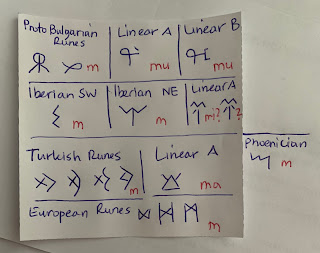 Proto Bulgarian Runes | Linear A | Linear B
m | mu | mu
Iberian SW | Iberian NE | Linear A
m | m | mi? ?
Turkish Runes | Linear A | Phoenician
m | ma | m
European Runes
m